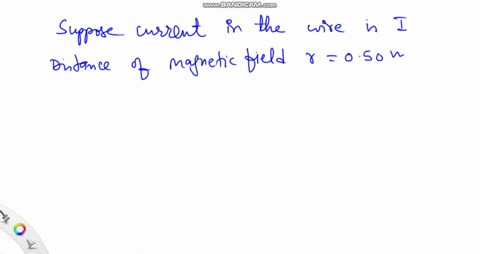 www.BANDICAM.com
Suppose current in the wire is I
Distance of magnetic field r = 0.50 m